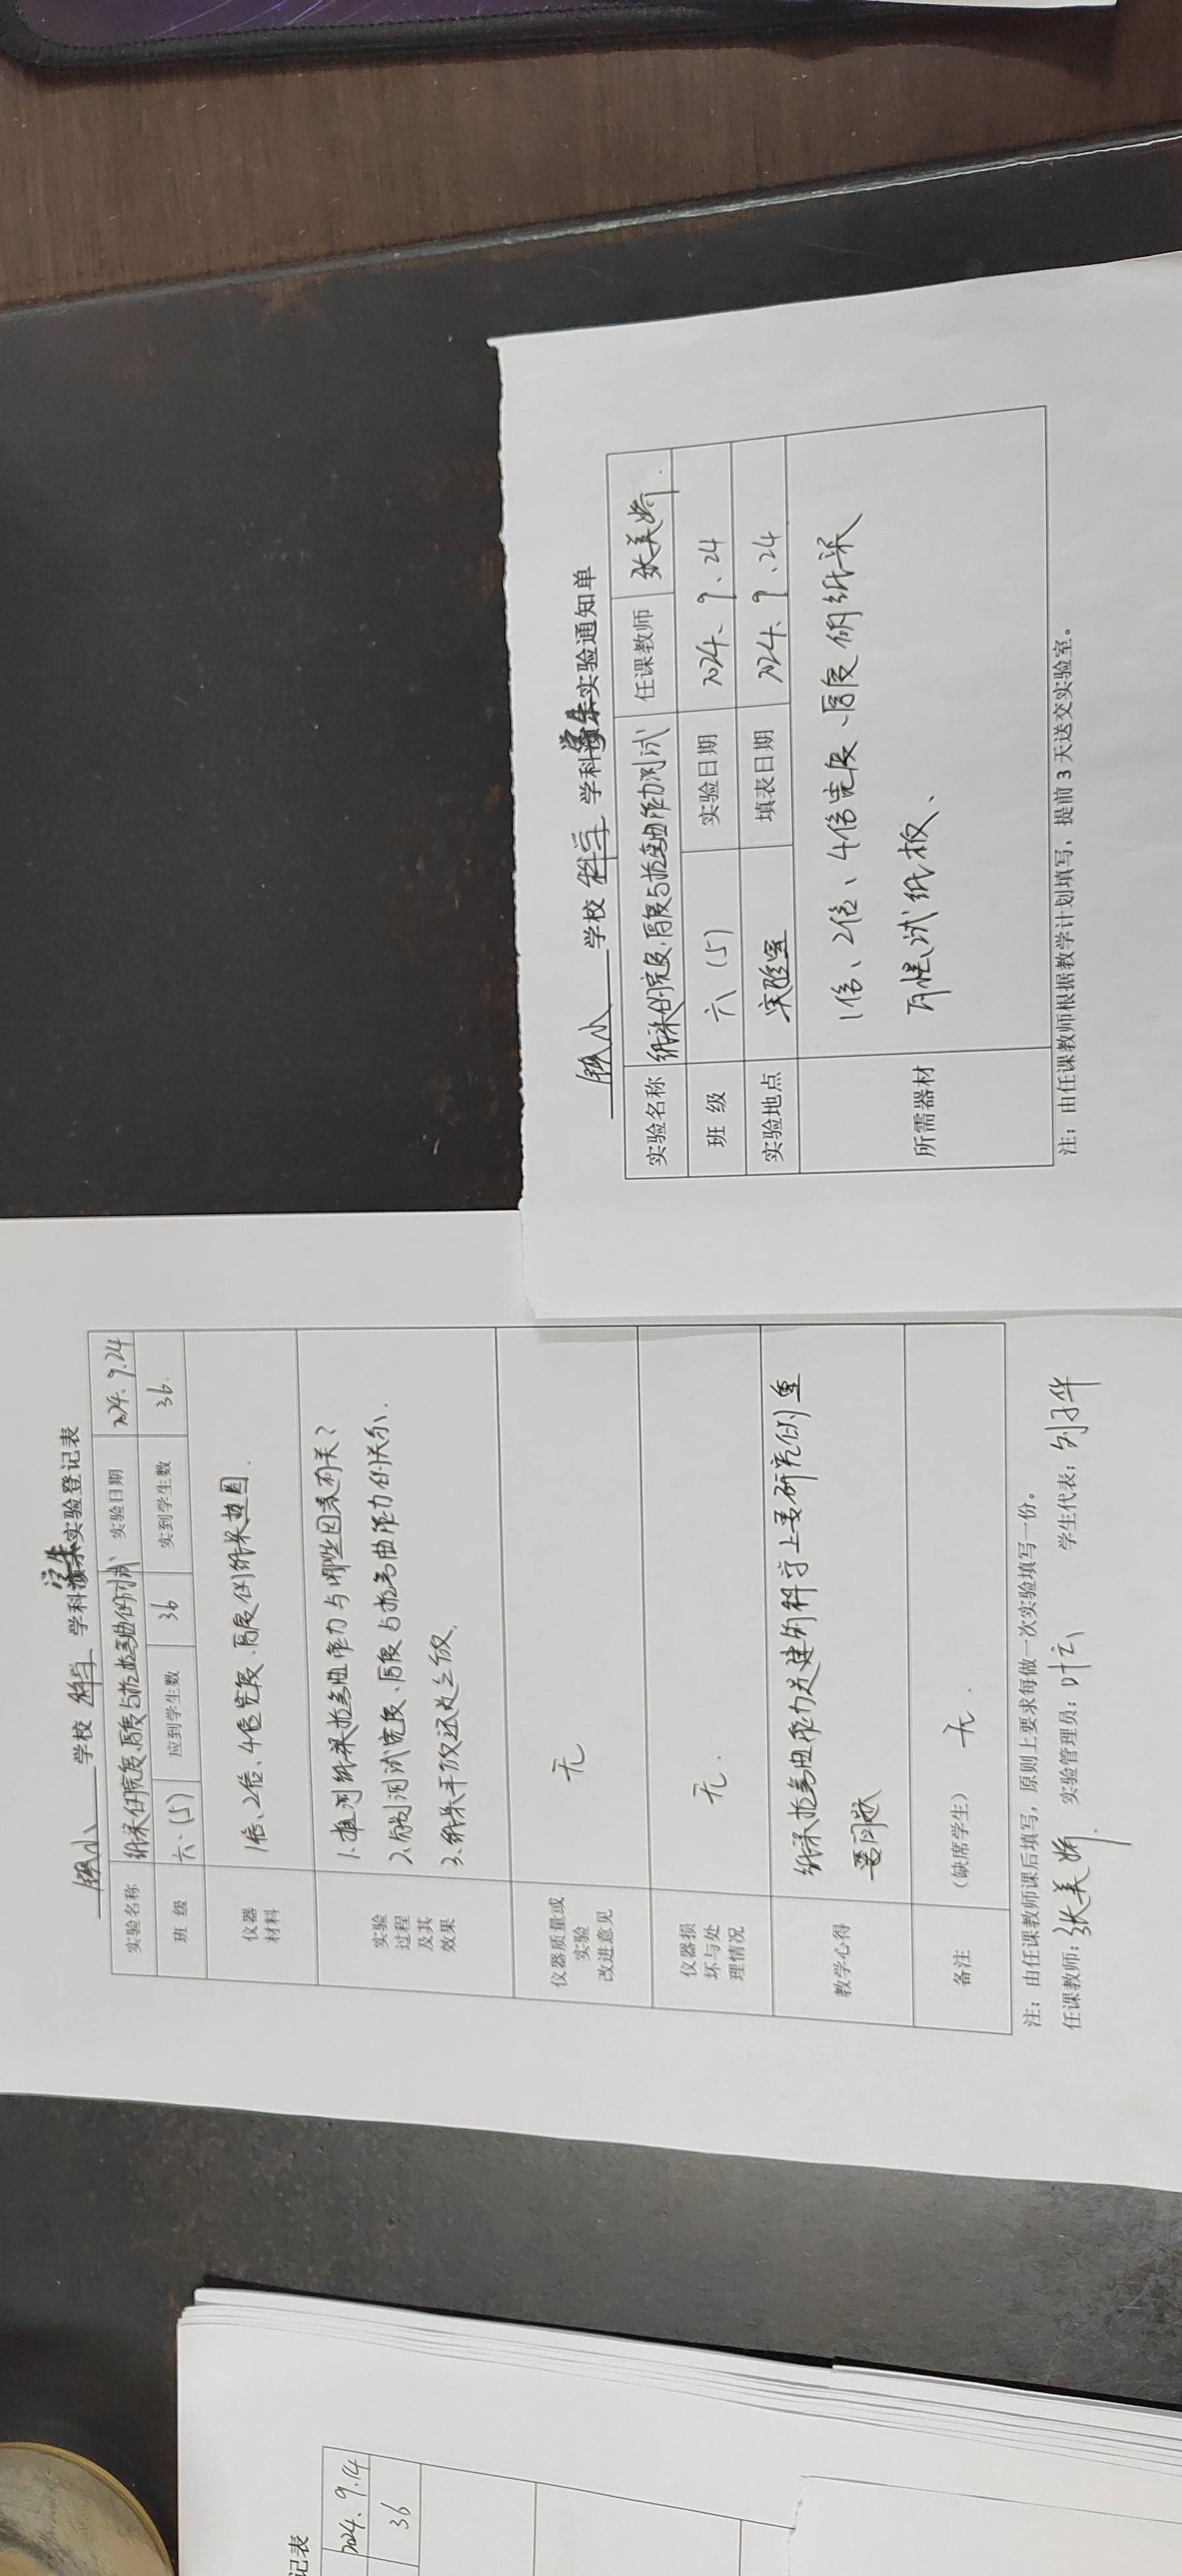 学校 科学 学科学生实验登记表
实验名称 纸梁的宽度、厚度与抗弯曲的测试 实验日期 2024.9.24
班 级 六、(5) 应到学生数 36 实到学生数 36.
仪器材料 1倍、2倍、4倍宽度、厚度的纸梁 垫圈.
实验过程及其效果
1.推测纸梁抗弯曲能力与哪些因素有关?
2.分别测试宽度、厚度与抗弯曲能力的关系.
3.纸梁平放还是立放.
仪器质量或实验改进意见 无
仪器损坏与处理情况 无.
教学心得 纸梁抗弯曲能力是建筑科学上要研究的重
要问题
备注 (缺席学生) 无.
注:由任课教师课后填写,原则上要求每做一次实验填写一份。
任课教师:张美娇. 实验管理员:叶云 学生代表:
学校 科学 学科学生实验通知单
实验名称 纸梁的宽度、厚度与抗弯曲能力测试 任课教师 张美娇.
班 级 六、(5) 实验日期 2024、9、24
实验地点 实验室 填表日期 2024、9、24
所需器材
1倍、2倍、4倍宽度、厚度的纸梁
测试纸板、
注:由任课教师根据教学计划填写,提前 3 天送交实验室。
记表
2024、9.14
36